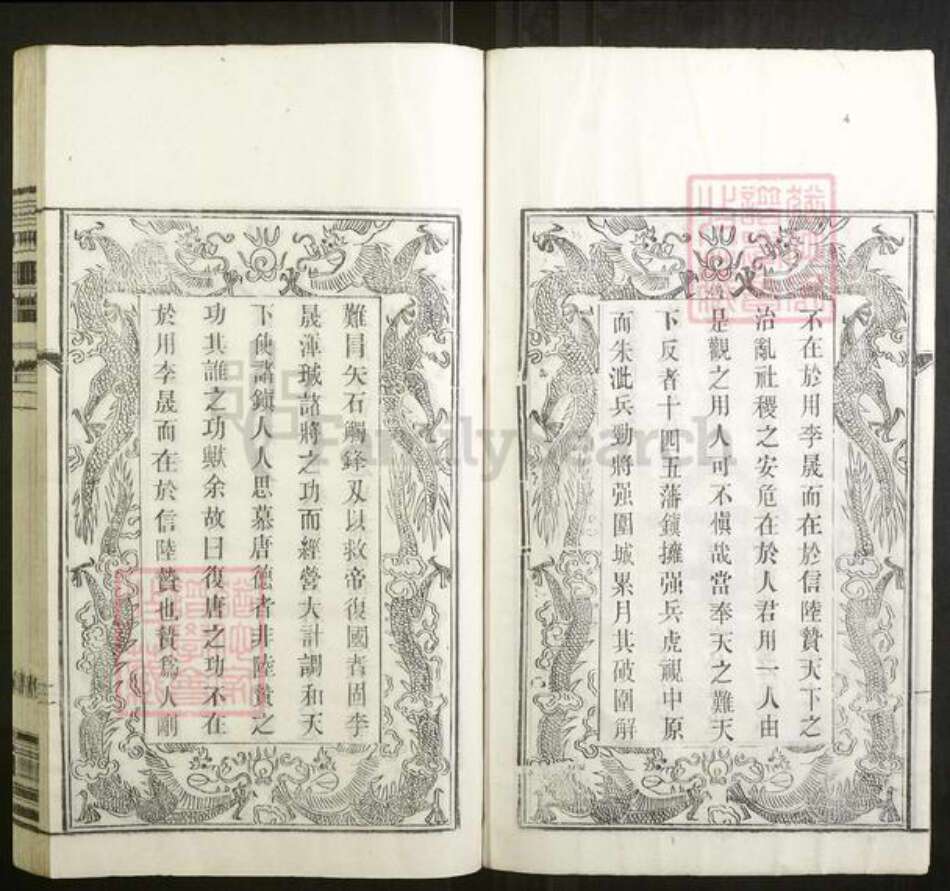 不在於用李晟而在於信陸贄天下之
治亂社稷之安危在於人君用一人由
是觀之用人可不愼哉當奉天之難天
下反者十四五藩鎭擁强兵虎視中原
而朱泚兵勁將强圍城累月其破圍解
難冒矢石觸鋒刃以救帝復國者固李
晟渾瑊諸將之功而經營大計調和天
下使諸鎭人人思慕唐德者非陸贄之
功其誰之功歟余故曰復唐之功不在
於用李晟而在於信陸贄也贄爲人剛
FamilySearch